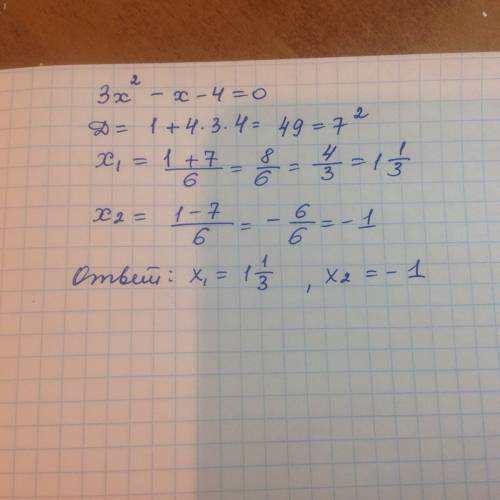 3x² - x - 4 = 0
Д = 1 + 4·3·4 = 49 = 7²
x₁ = (1 + 7)/6 = 8/6 = 4/3 = 1 1/3
x₂ = (1 - 7)/6 = - 6/6 = - 1
Ответ: x₁ = 1 1/3 , x₂ = - 1